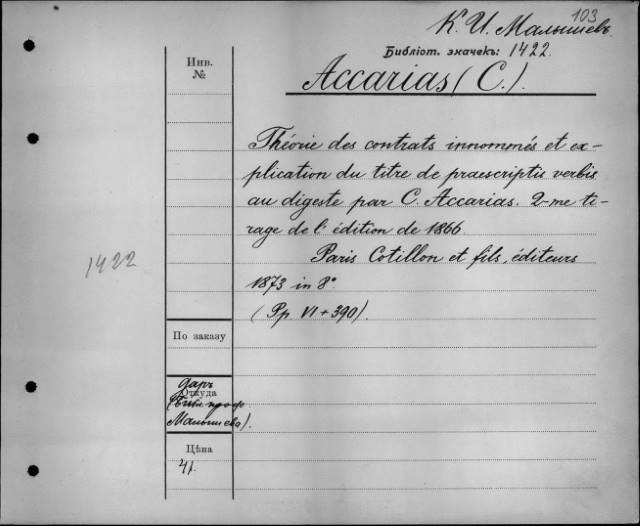 103
К. И. Малышевъ.
Библіот. значекъ: 1422.
Accarias (C.).
Инв.
№
Théorie des contrats innommés et ex-
plication du titre de praescriptis verbis
au digeste par C. Accarias. 2-me ti-
rage de l'édition de 1866.
Paris Cotillon et fils, éditeurs
1873 in 8°
(Pp. VI + 390).
1422
По заказу
даръ
Откуда
(Библ. проф.
Малышева).
Цѣна